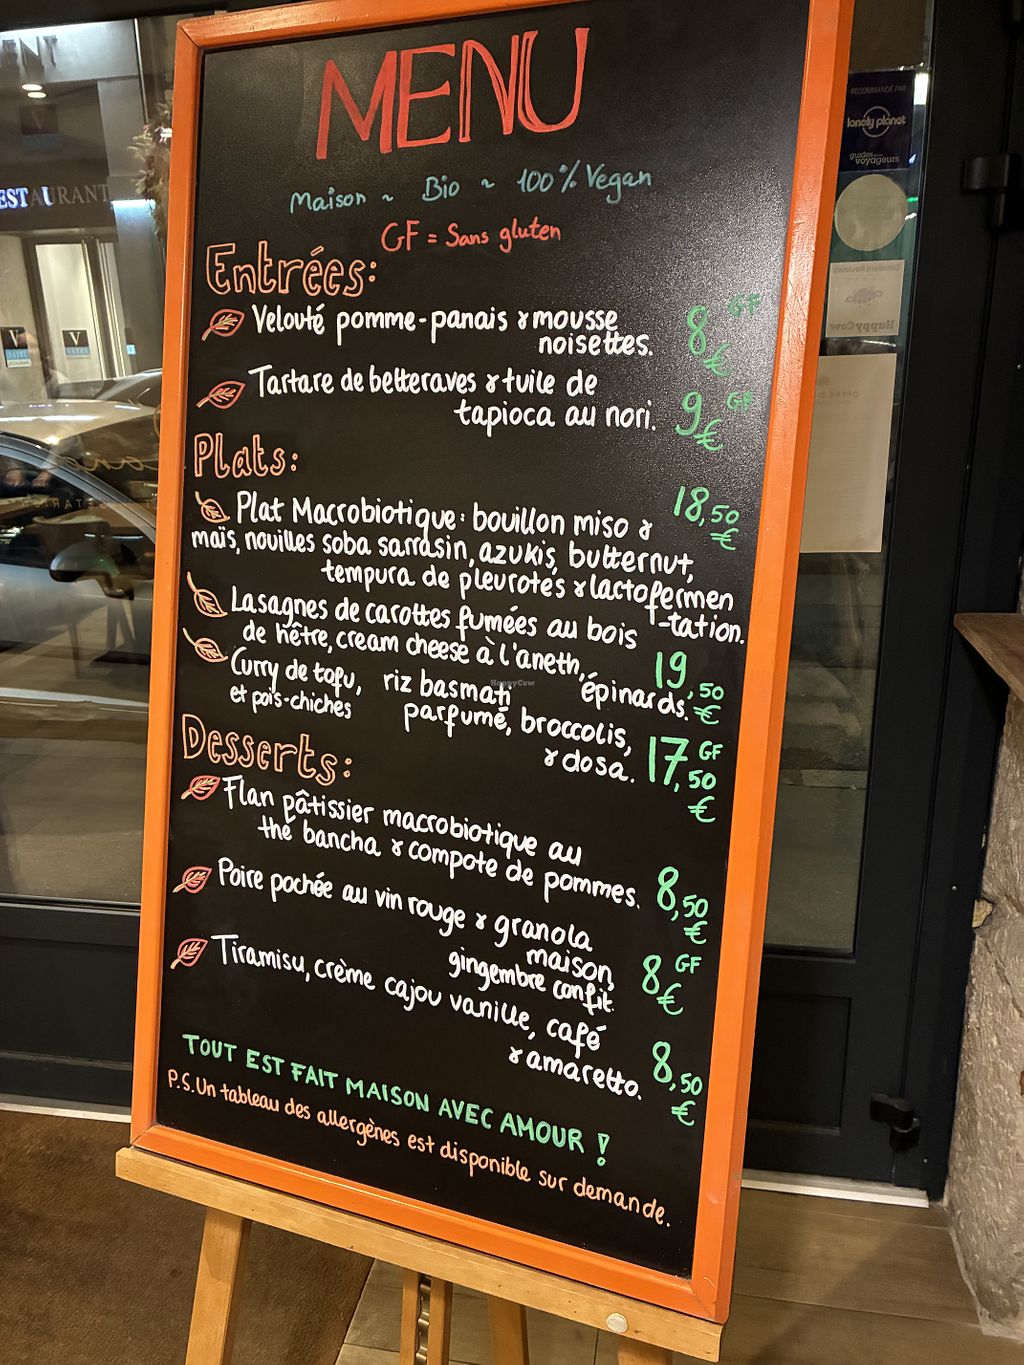 MENU
Maison ~ Bio ~ 100% Vegan
GF = Sans gluten
Entrées:
Velouté pomme-panais & mousse
noisettes. 8€ GF
Tartare de betteraves & tuile de
tapioca au nori. 9€ GF
Plats:
Plat Macrobiotique: bouillon miso & 18,50 €
maïs, nouilles soba sarrasin, azukis, butternut,
tempura de pleurotes & lactofermen
-tation.
Lasagnes de carottes fumées au bois
de hêtre, cream cheese à l'aneth, 19,50 €
épinards.
Curry de tofu, riz basmati
et pois-chiches parfumé, broccolis,
& dosa. 17,50 € GF
Desserts:
Flan pâtissier macrobiotique au
thé bancha & compote de pommes. 8,50 €
Poire pochée au vin rouge & granola
maison,
gingembre confit. 8€ GF
Tiramisu, crème cajou vanille, café
& amaretto. 8,50 €
TOUT EST FAIT MAISON AVEC AMOUR !
P.S. Un tableau des allergènes est disponible sur demande.
RECOMMANDÉ PAR
lonely planet
guides voyageurs
HappyCow
ESTAURANT
V
V
HappyCow